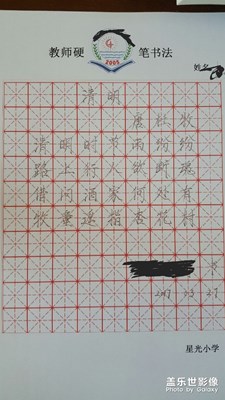 教师硬 笔书法
2005
姓名
清明
唐杜牧
清明时节雨纷纷
路上行人欲断魂
借问酒家何处有
牧童遥指杏花村
书
2017 3 27
星光小学
盖乐世影像
Photo by Galaxy